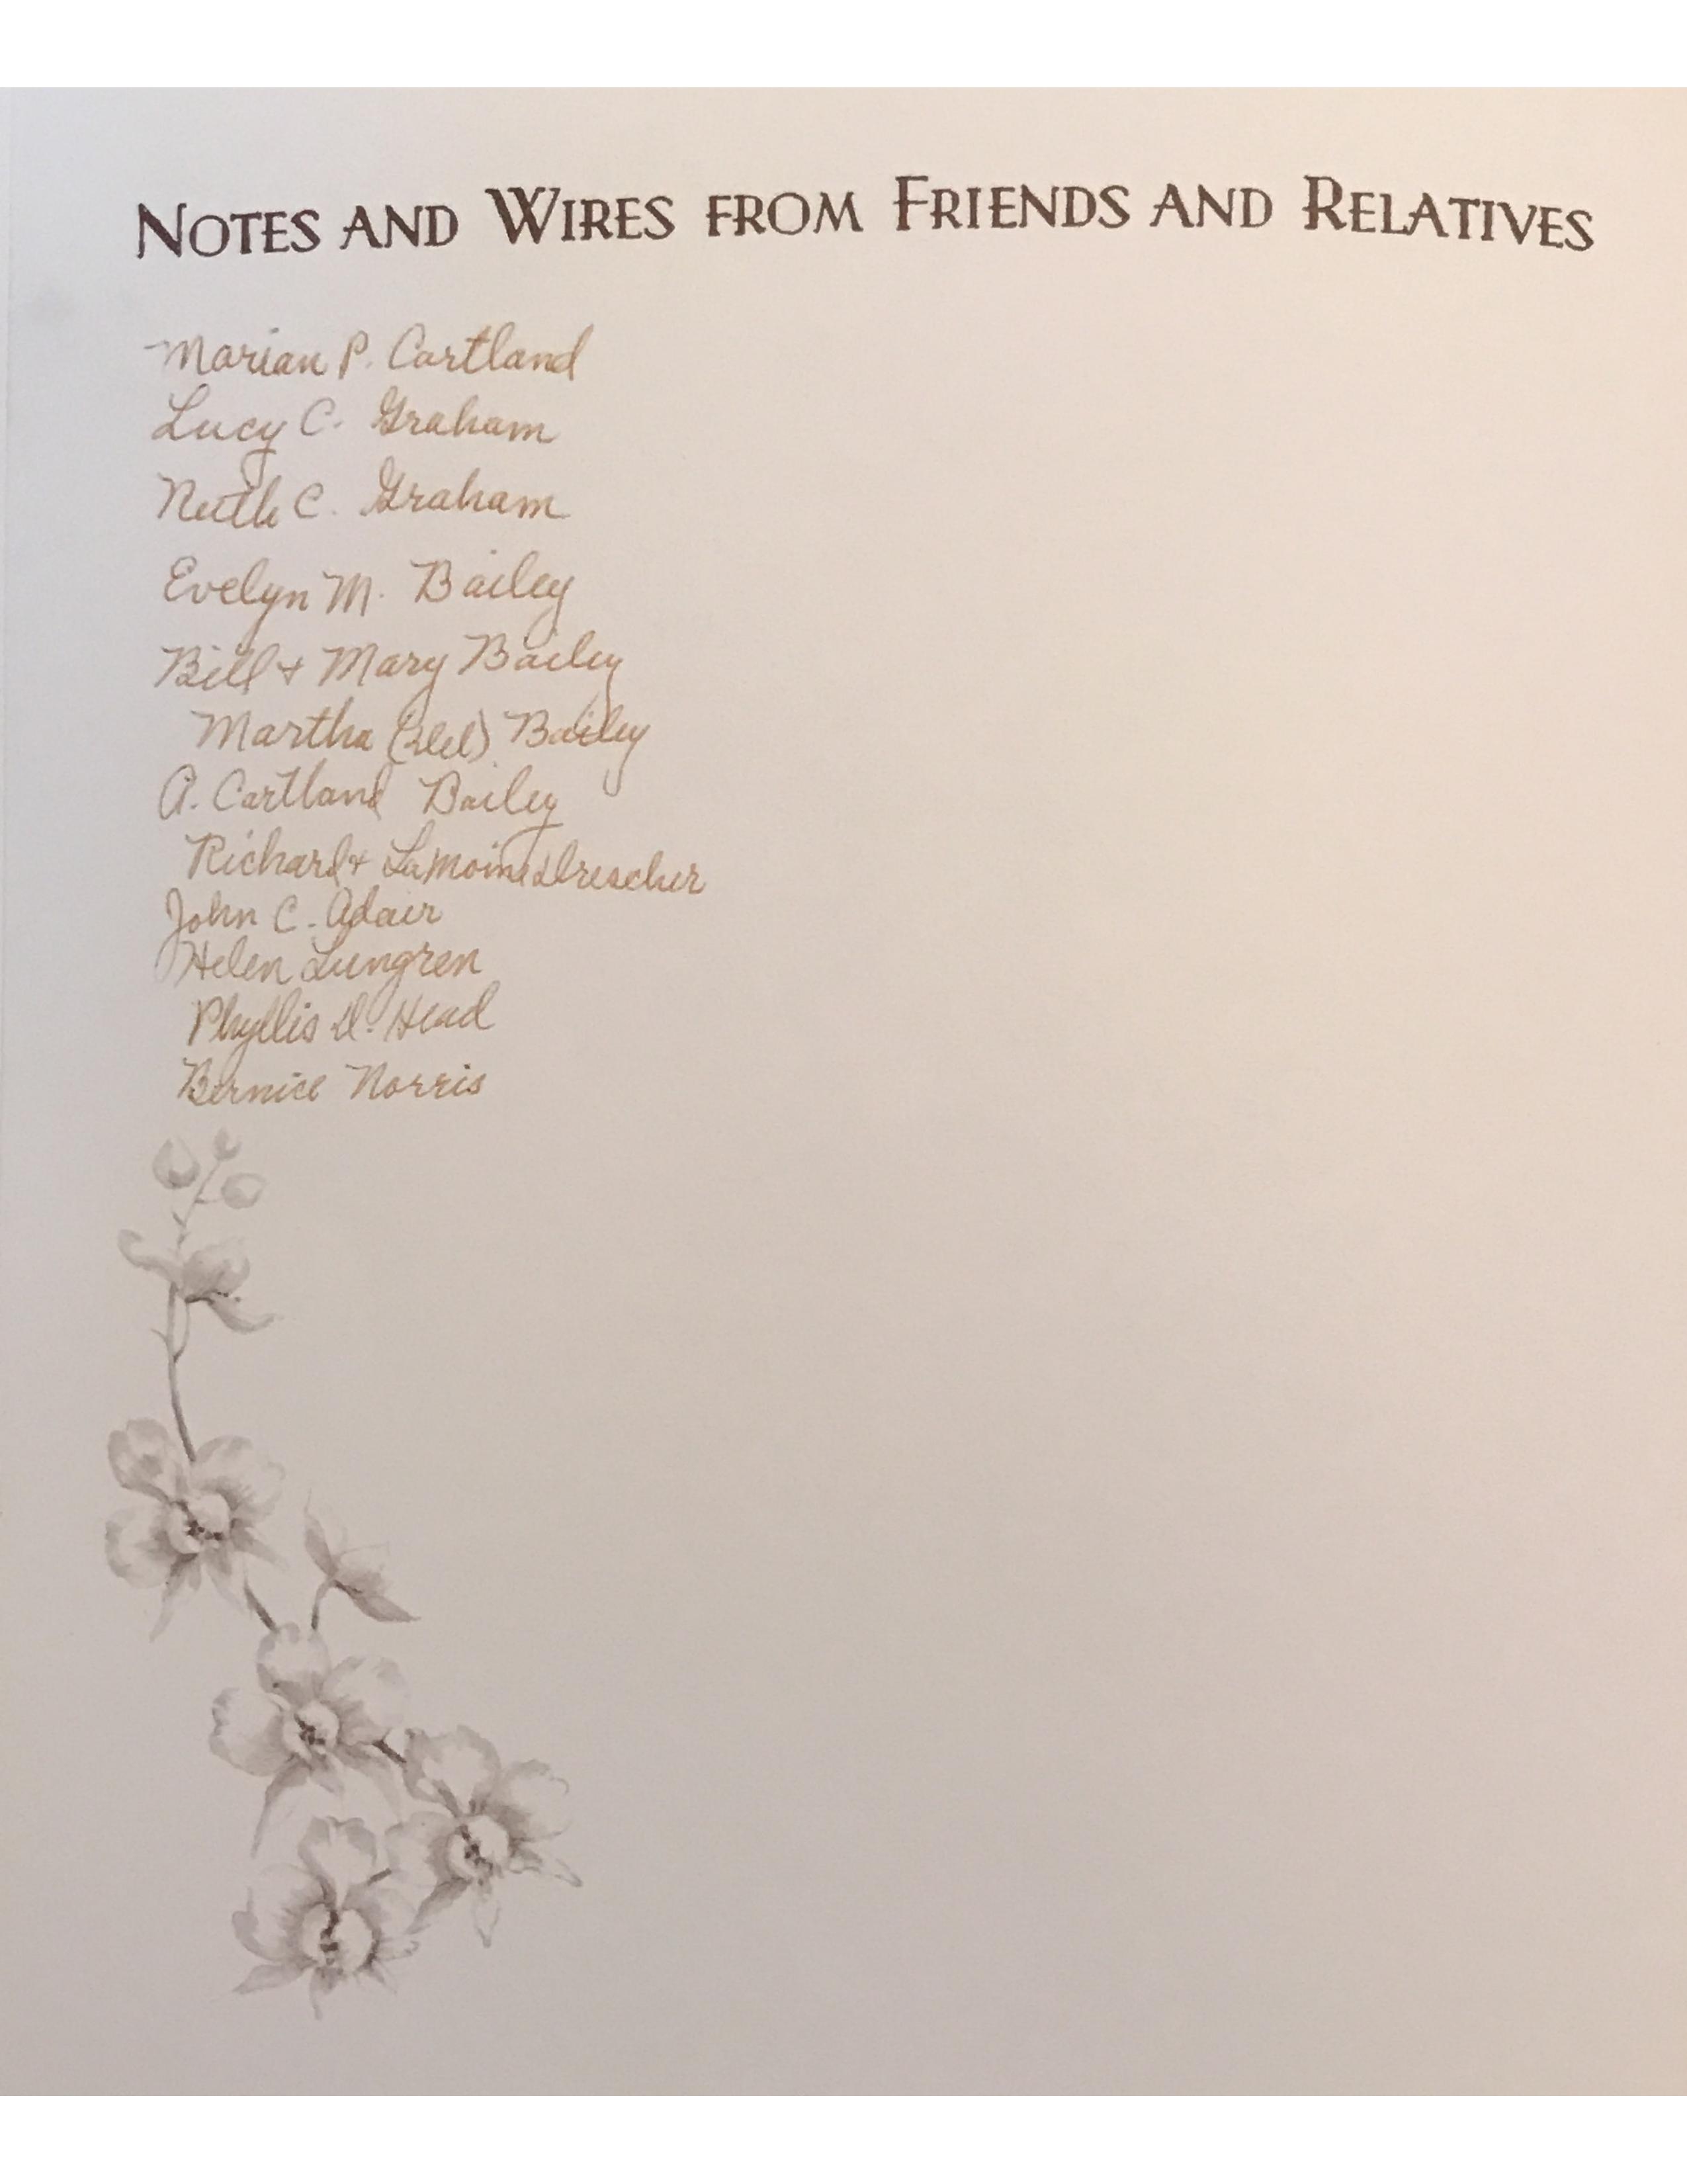 NOTES AND WIRES FROM FRIENDS AND RELATIVES
Marian P. Cartland
Lucy C. Graham
Ruth C. Graham
Evelyn M. Bailey
Bill & Mary Bailey
Martha Bailey
A. Cartland Bailey
Richard & LaMoine Drescher
John C. Adair
Helen Lungren
Phyllis D. Head
Bernice Norris